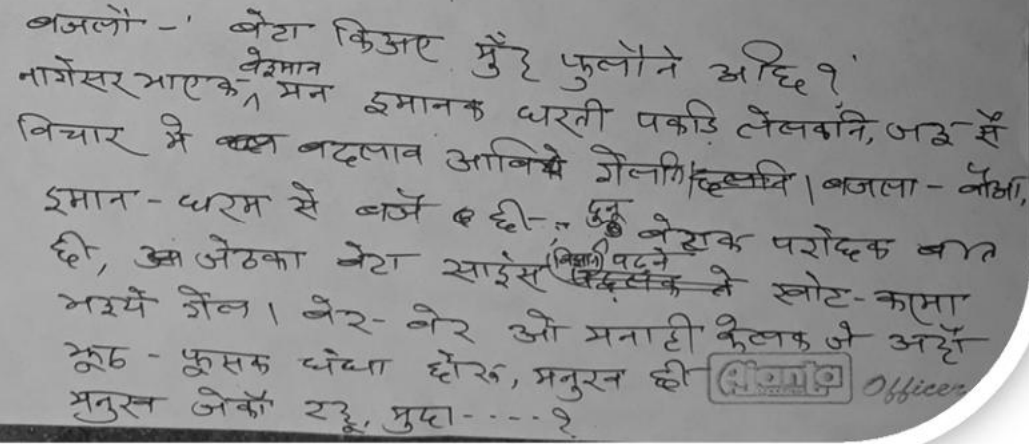 बजलौ - ' बेटा किअए मुँह फुलौने अछि ?'
नागेसर भाएक बेइमान मन इमानक धरती पकड़ि लेलकनि, जइ सँ
विचार मे बदलाव आबिये गेलनि । बजला - बौआ,
इमान - धरम सँ बजै छी- दुनू बेटाक परोछक बात
छी, जेठका बेटा साइंस (विज्ञान) पढ़ने खोट - करमा
भइये गेल । बेर - बेर ओ मनाही केलक जे अहाँ
झूठ - फूसक धंधा छोरू, मनुख छी
मनुख जेकाँ रहू, मुदा - - - - - ?
Ajanta Officer